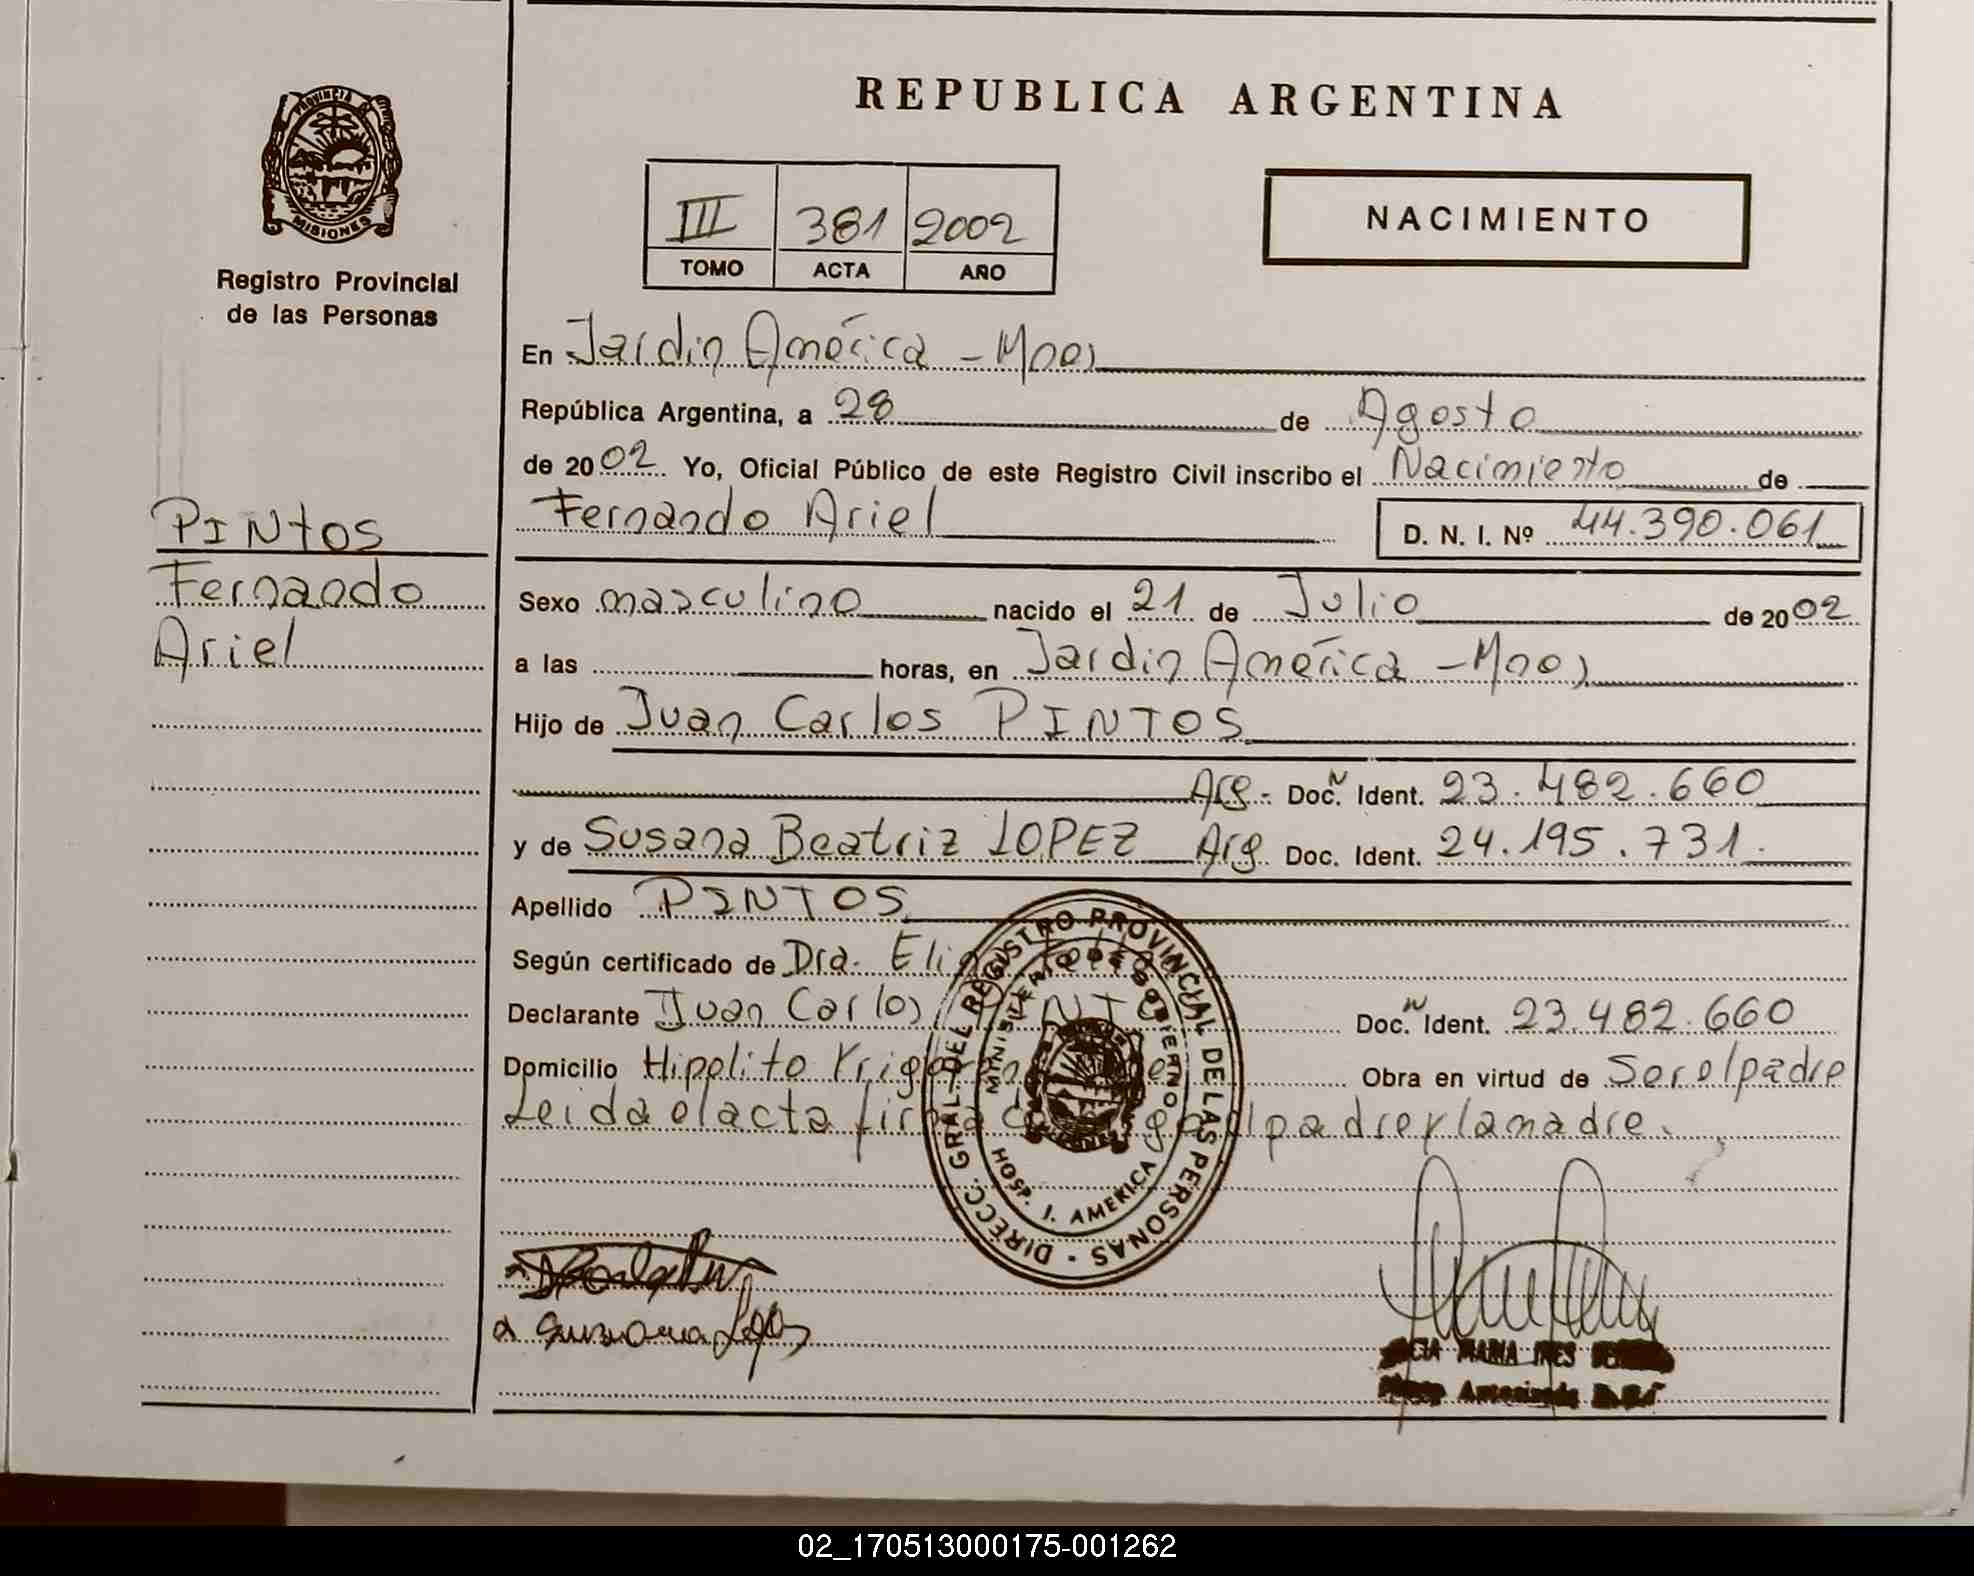 PROVINCIA DE
MISIONES
Registro Provincial
de las Personas
PINTOS
Fernando
Ariel
REPUBLICA ARGENTINA
III 381 2002
TOMO ACTA AÑO
NACIMIENTO
En Jardin América - Mnes
República Argentina, a 28 de Agosto
de 2002 Yo, Oficial Público de este Registro Civil inscribo el Nacimiento de
Fernando Ariel D. N. I. Nº 44.390.061
Sexo masculino nacido el 21 de Julio de 2002
a las horas, en Jardin América - Mnes
Hijo de Juan Carlos PINTOS
Arg. Doc. Ident. 23.482.660
y de Susana Beatriz LOPEZ Arg Doc. Ident. 24.195.731.
Apellido PINTOS
Según certificado de Dra.
Declarante Juan Carlos PINTOS Doc. Ident. 23.482.660
Domicilio Hipolito Obra en virtud de Ser el padre
Leida el acta el padre y la madre.
DIRECC. GRAL. DEL REGISTRO PROVINCIAL DE LAS PERSONAS
MINISTERIO DE GOBIERNO
HOSP. J. AMERICA
MARIA INES
02_170513000175-001262